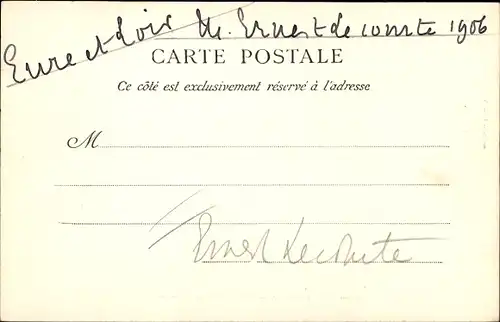 Eure et Loir M. Ernest de comte 1906
CARTE POSTALE
Ce côté est exclusivement réservé à l'adresse
M
Ernest Lecomte